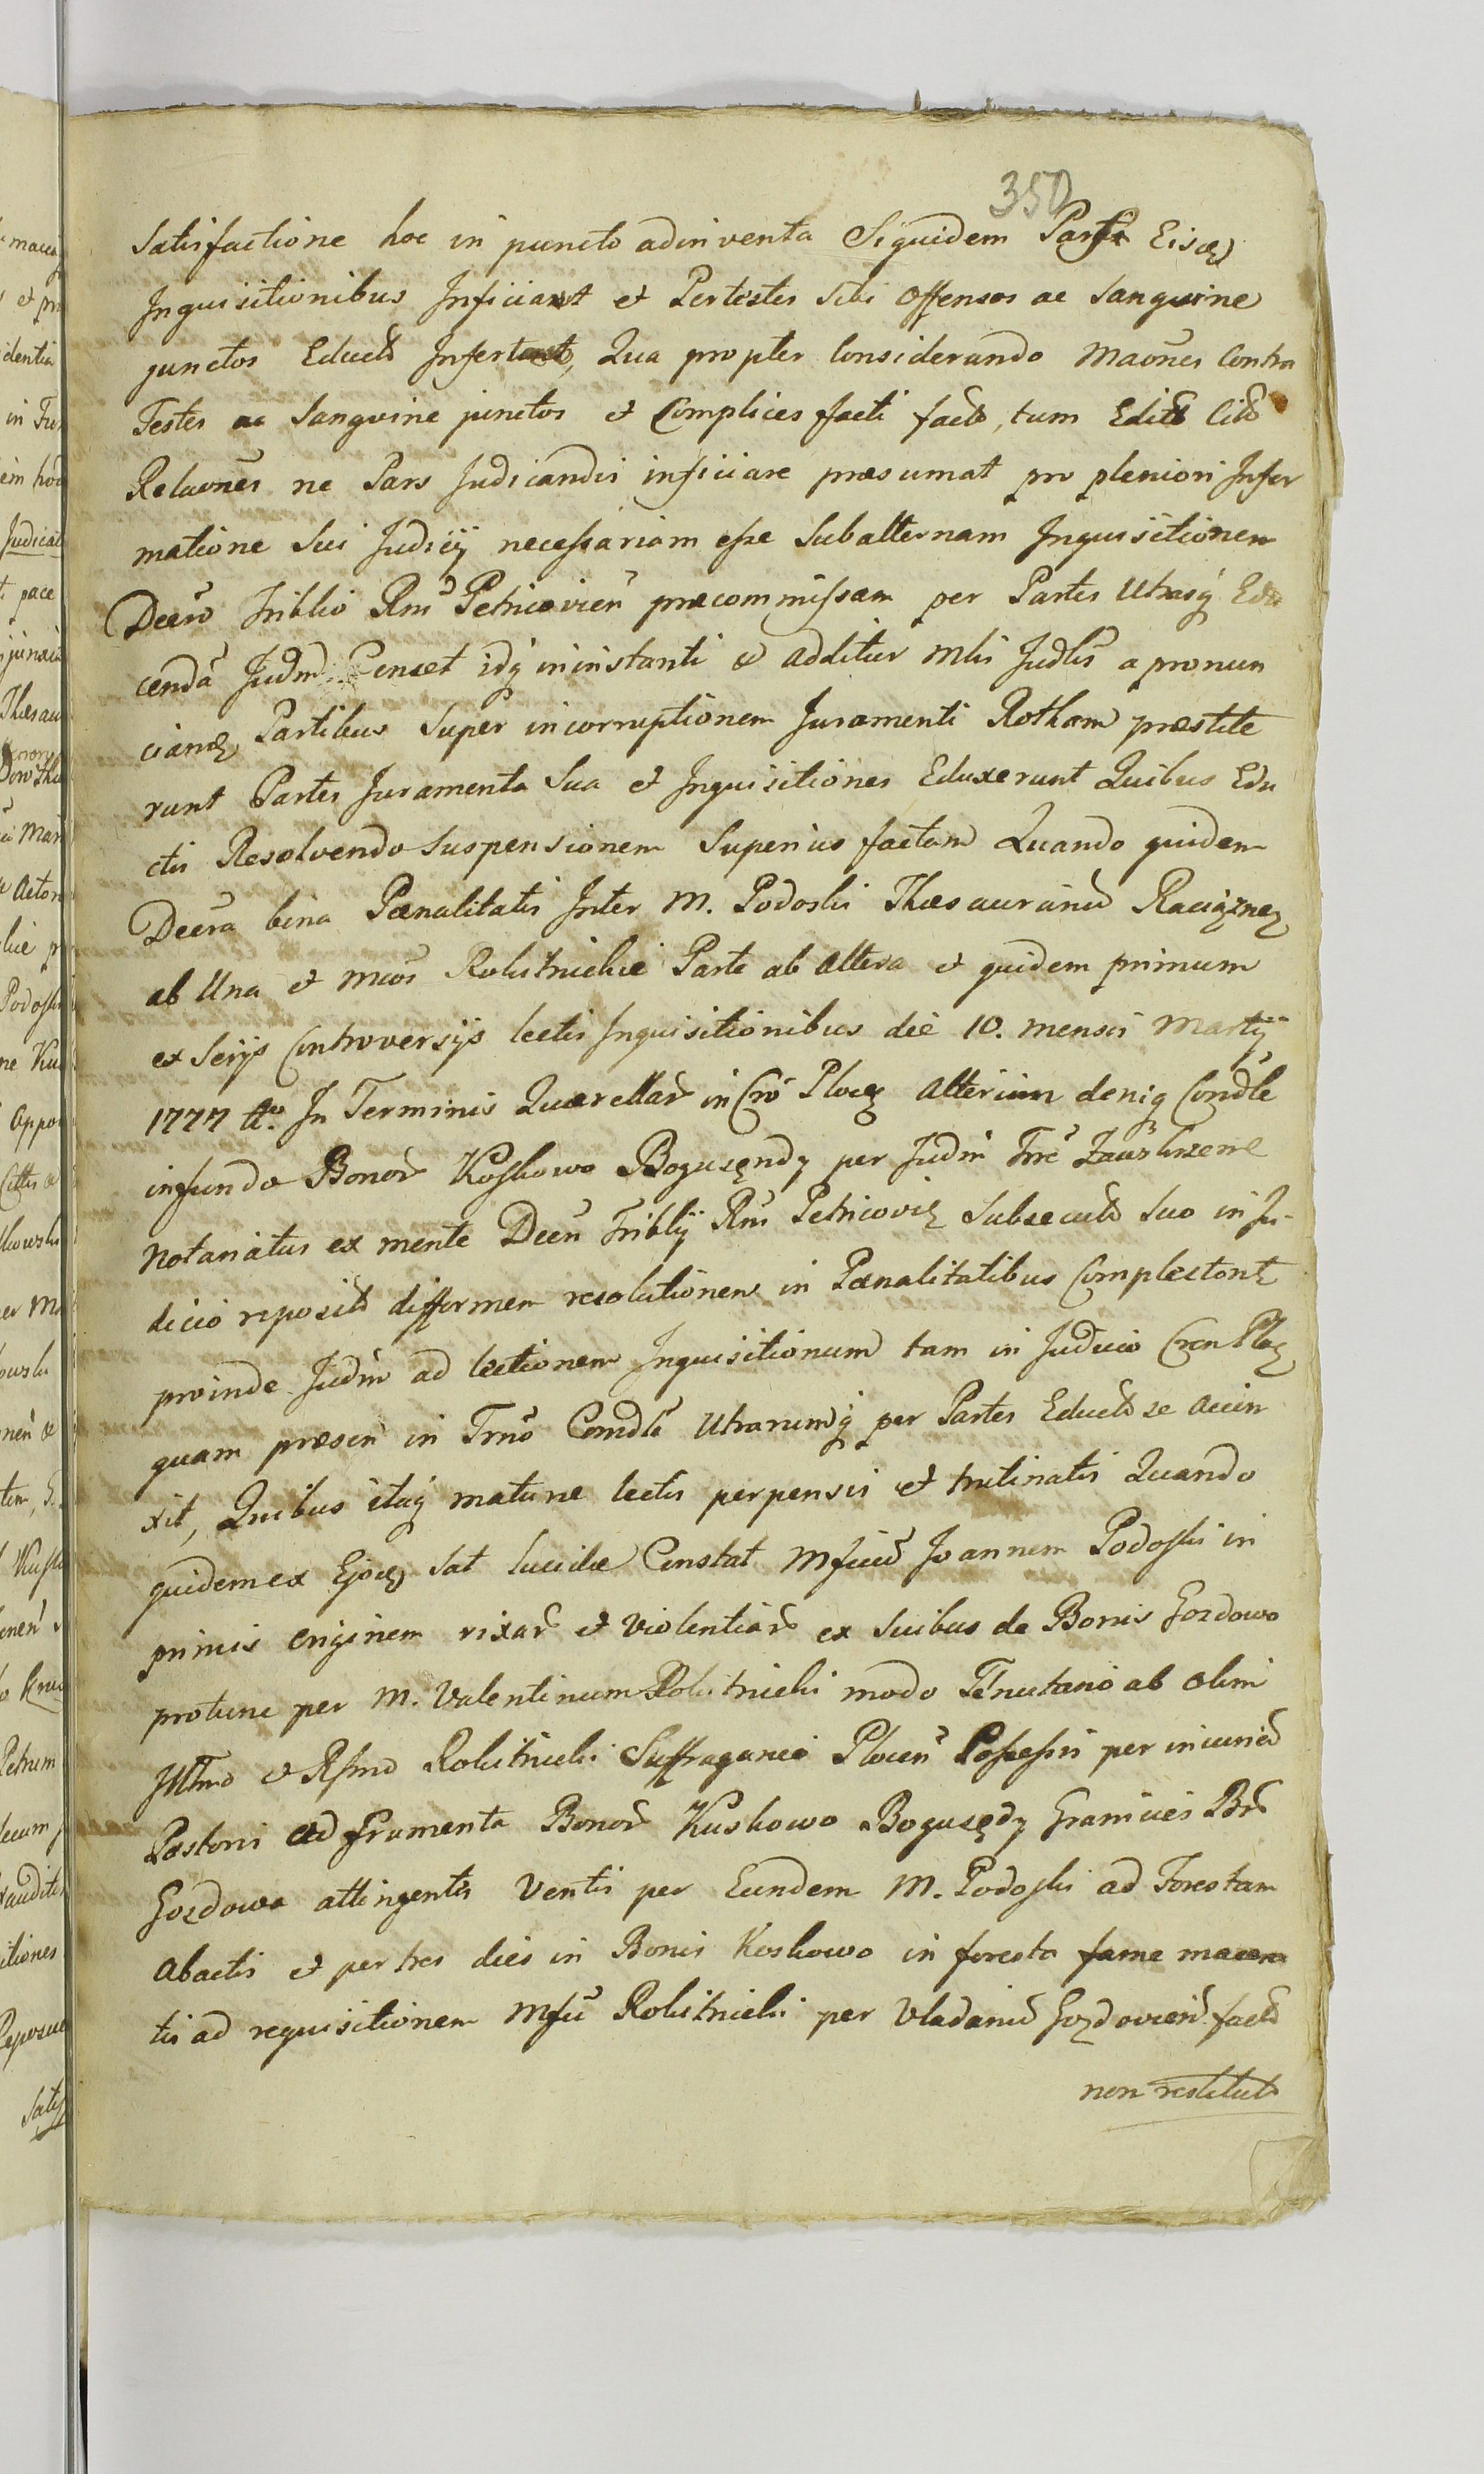 350
Satisfactione hoc in puncto adinventa Siquidem Parte Eisdem
Inquisitionibus Inficiant et Pertestes Sibi offensos ac Sanguine
junctos Educt Infertant, Qua propter Considerando Maones Contra
Testes ac Sangvine junctos et Complices facti fact, tum Edict Cit
Relaones ne Pars Judicandis inficiare præsumat pro pleniori Infor
matione Sui Judicij necessariam esse Subalternam Inquisitionem
Decro Triblio Rni Petricovien præcommissam per Partes Utrasq Edu
cendã Judm Censet idq ininstanti et additur Mlis Judlis a pronun
cianẽ Partibus Super incorruptionem Juramenti Rotham præstite
runt Partes Juramenta Sua et Inquisitiones Eduxerunt Quibus Edu
ctis Resolvendo Suspensionem Superius factam Quando quidem
Decra bina Pœnalitatis Inter M. Podoski Thesaurariũ Raciąznẽ
ab Una et Mcos Rokitnickie Parte ab Altera et quidem primum
ex Serijs Controversijs lectis Inquisitionibus die 10. mensis Martij
1777 Ao. In Terminis Querellar in Cro Plocẽ Alterium deniq Condle
infundo Bonor Koskowo Bogusęndy per Judm Trre Zawskrzene
Notariatus ex mente Decri Triblij Rni Petricoviẽ Subsecut Suo in Ju-
dicio reposit difformem resolutionem in Pœnalitatibus Complectont
proinde Judm ad lectionem Inquisitionum tam in Judicio Cren Plocẽ
quam præsen in Trno Comdli Utrarumq per Partes Educt se accin
xit, Quibus itaq mature lectis perpensis et trutinatis Quando
quidem ex Ejsdem Sat lucide Constat Mficũ Joannem Podoski in
primis originem rixar et violentiar ex Suibus de Bonis Gozdowo
protunc per M. Valentinum Rokitnicki modo Tenutario ab olim
Illmo et Rssmo Rokitnicki Suffraganeo Plocen Possessis per incuriã
Pastoris ad frumenta Bonor Kuskowo Bogusędy Graniciei Br
Gozdowo attingentis Ventis per Eundem M. Podoski ad Forestam
abactis et per tres dies in Bonis Koskowo in foresta fame macera
tis ad requisitionem Mfci Rokitnicki per Vladariũ Gozdovien fact
non restitut